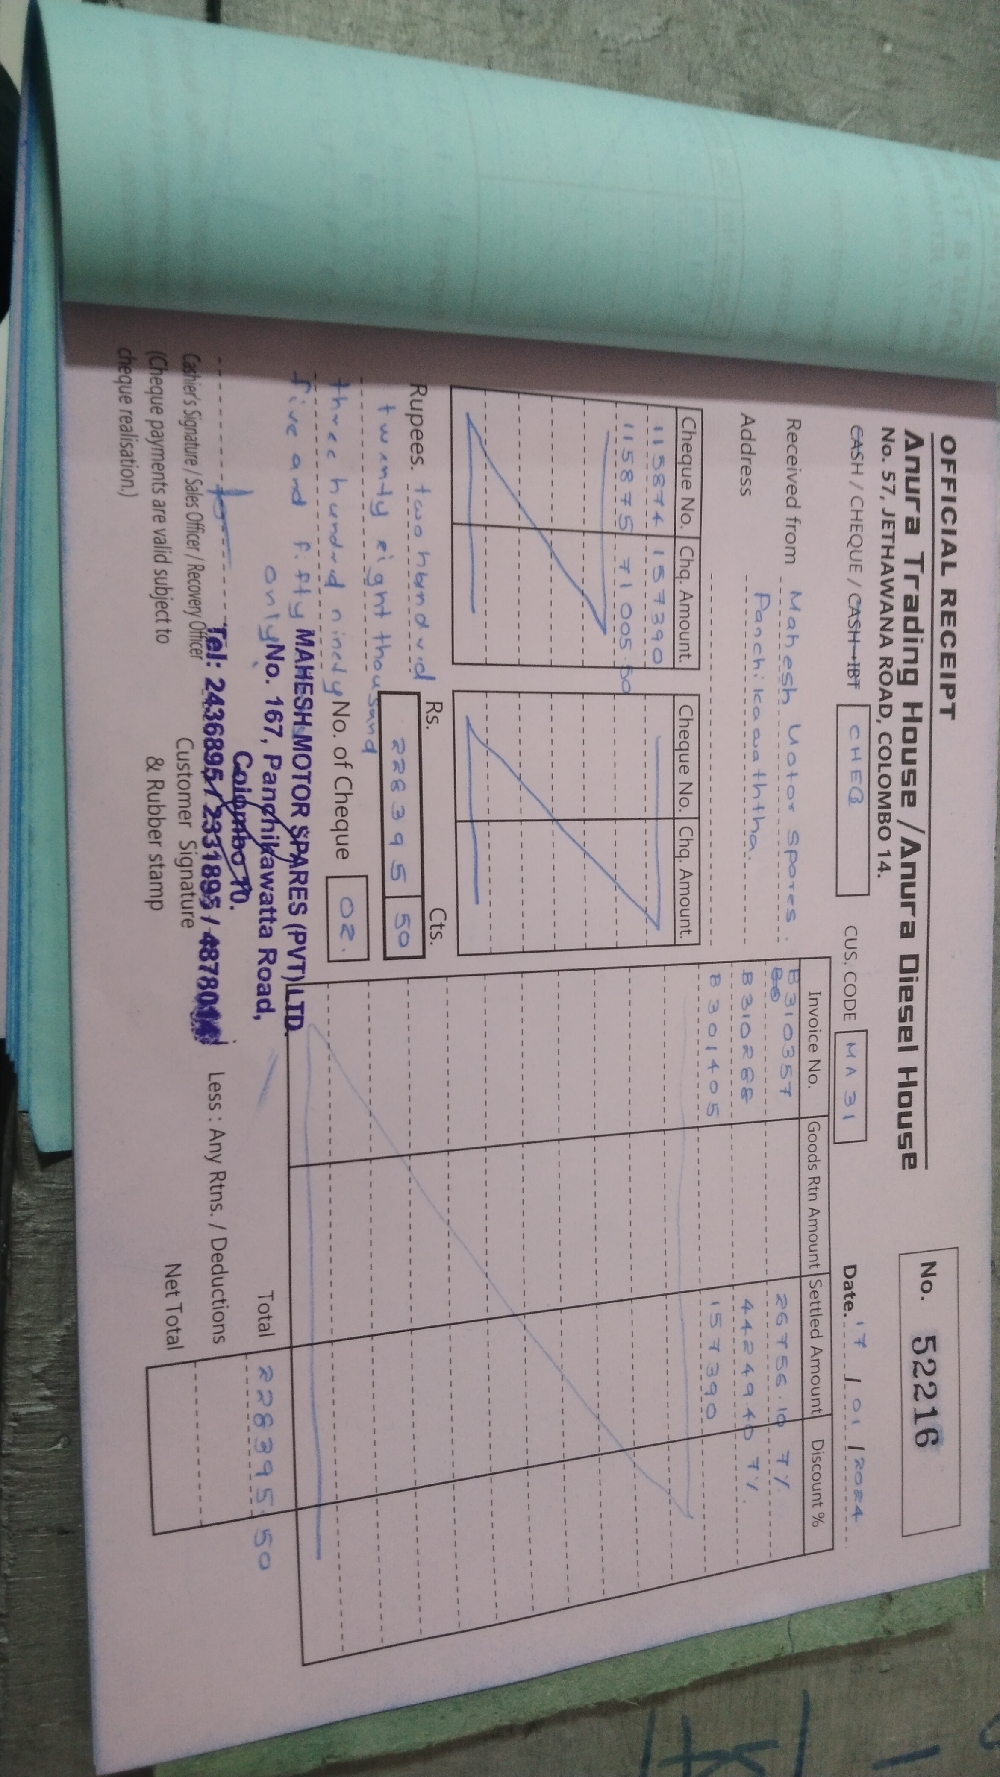 OFFICIAL RECEIPT
Anura Trading House / Anura Diesel House
No. 57, JETHAWANA ROAD, COLOMBO 14.
No. 52216
CASH / CHEQUE / CASH+IBT CHEQ CUS. CODE MA 31 Date. 17 / 01 / 2024
Received from Mahesh Motor Spares.
Address Panchikawaththa.
Cheque No. Chq. Amount.
115874 157390
115875 71005.50
Cheque No. Chq. Amount.
Invoice No. Goods Rtn Amount Settled Amount Discount %
B310357 26756.10 7%
B310288 44249.40 7%.
B301405 157390
Rupees. two hundred
twenty eight thousand
three hundred ninety
five and fifty
only.
Rs. Cts.
228395 50
No. of Cheque 02.
MAHESH MOTOR SPARES (PVT) LTD
No. 167, Panchikawatta Road,
Colombo 10.
Tel: 2436895 / 2331895 /
Total 228395.50
Less : Any Rtns. / Deductions
Net Total
Cashier's Signature / Sales Officer / Recovery Officer
(Cheque payments are valid subject to
cheque realisation.)
Customer Signature
& Rubber stamp